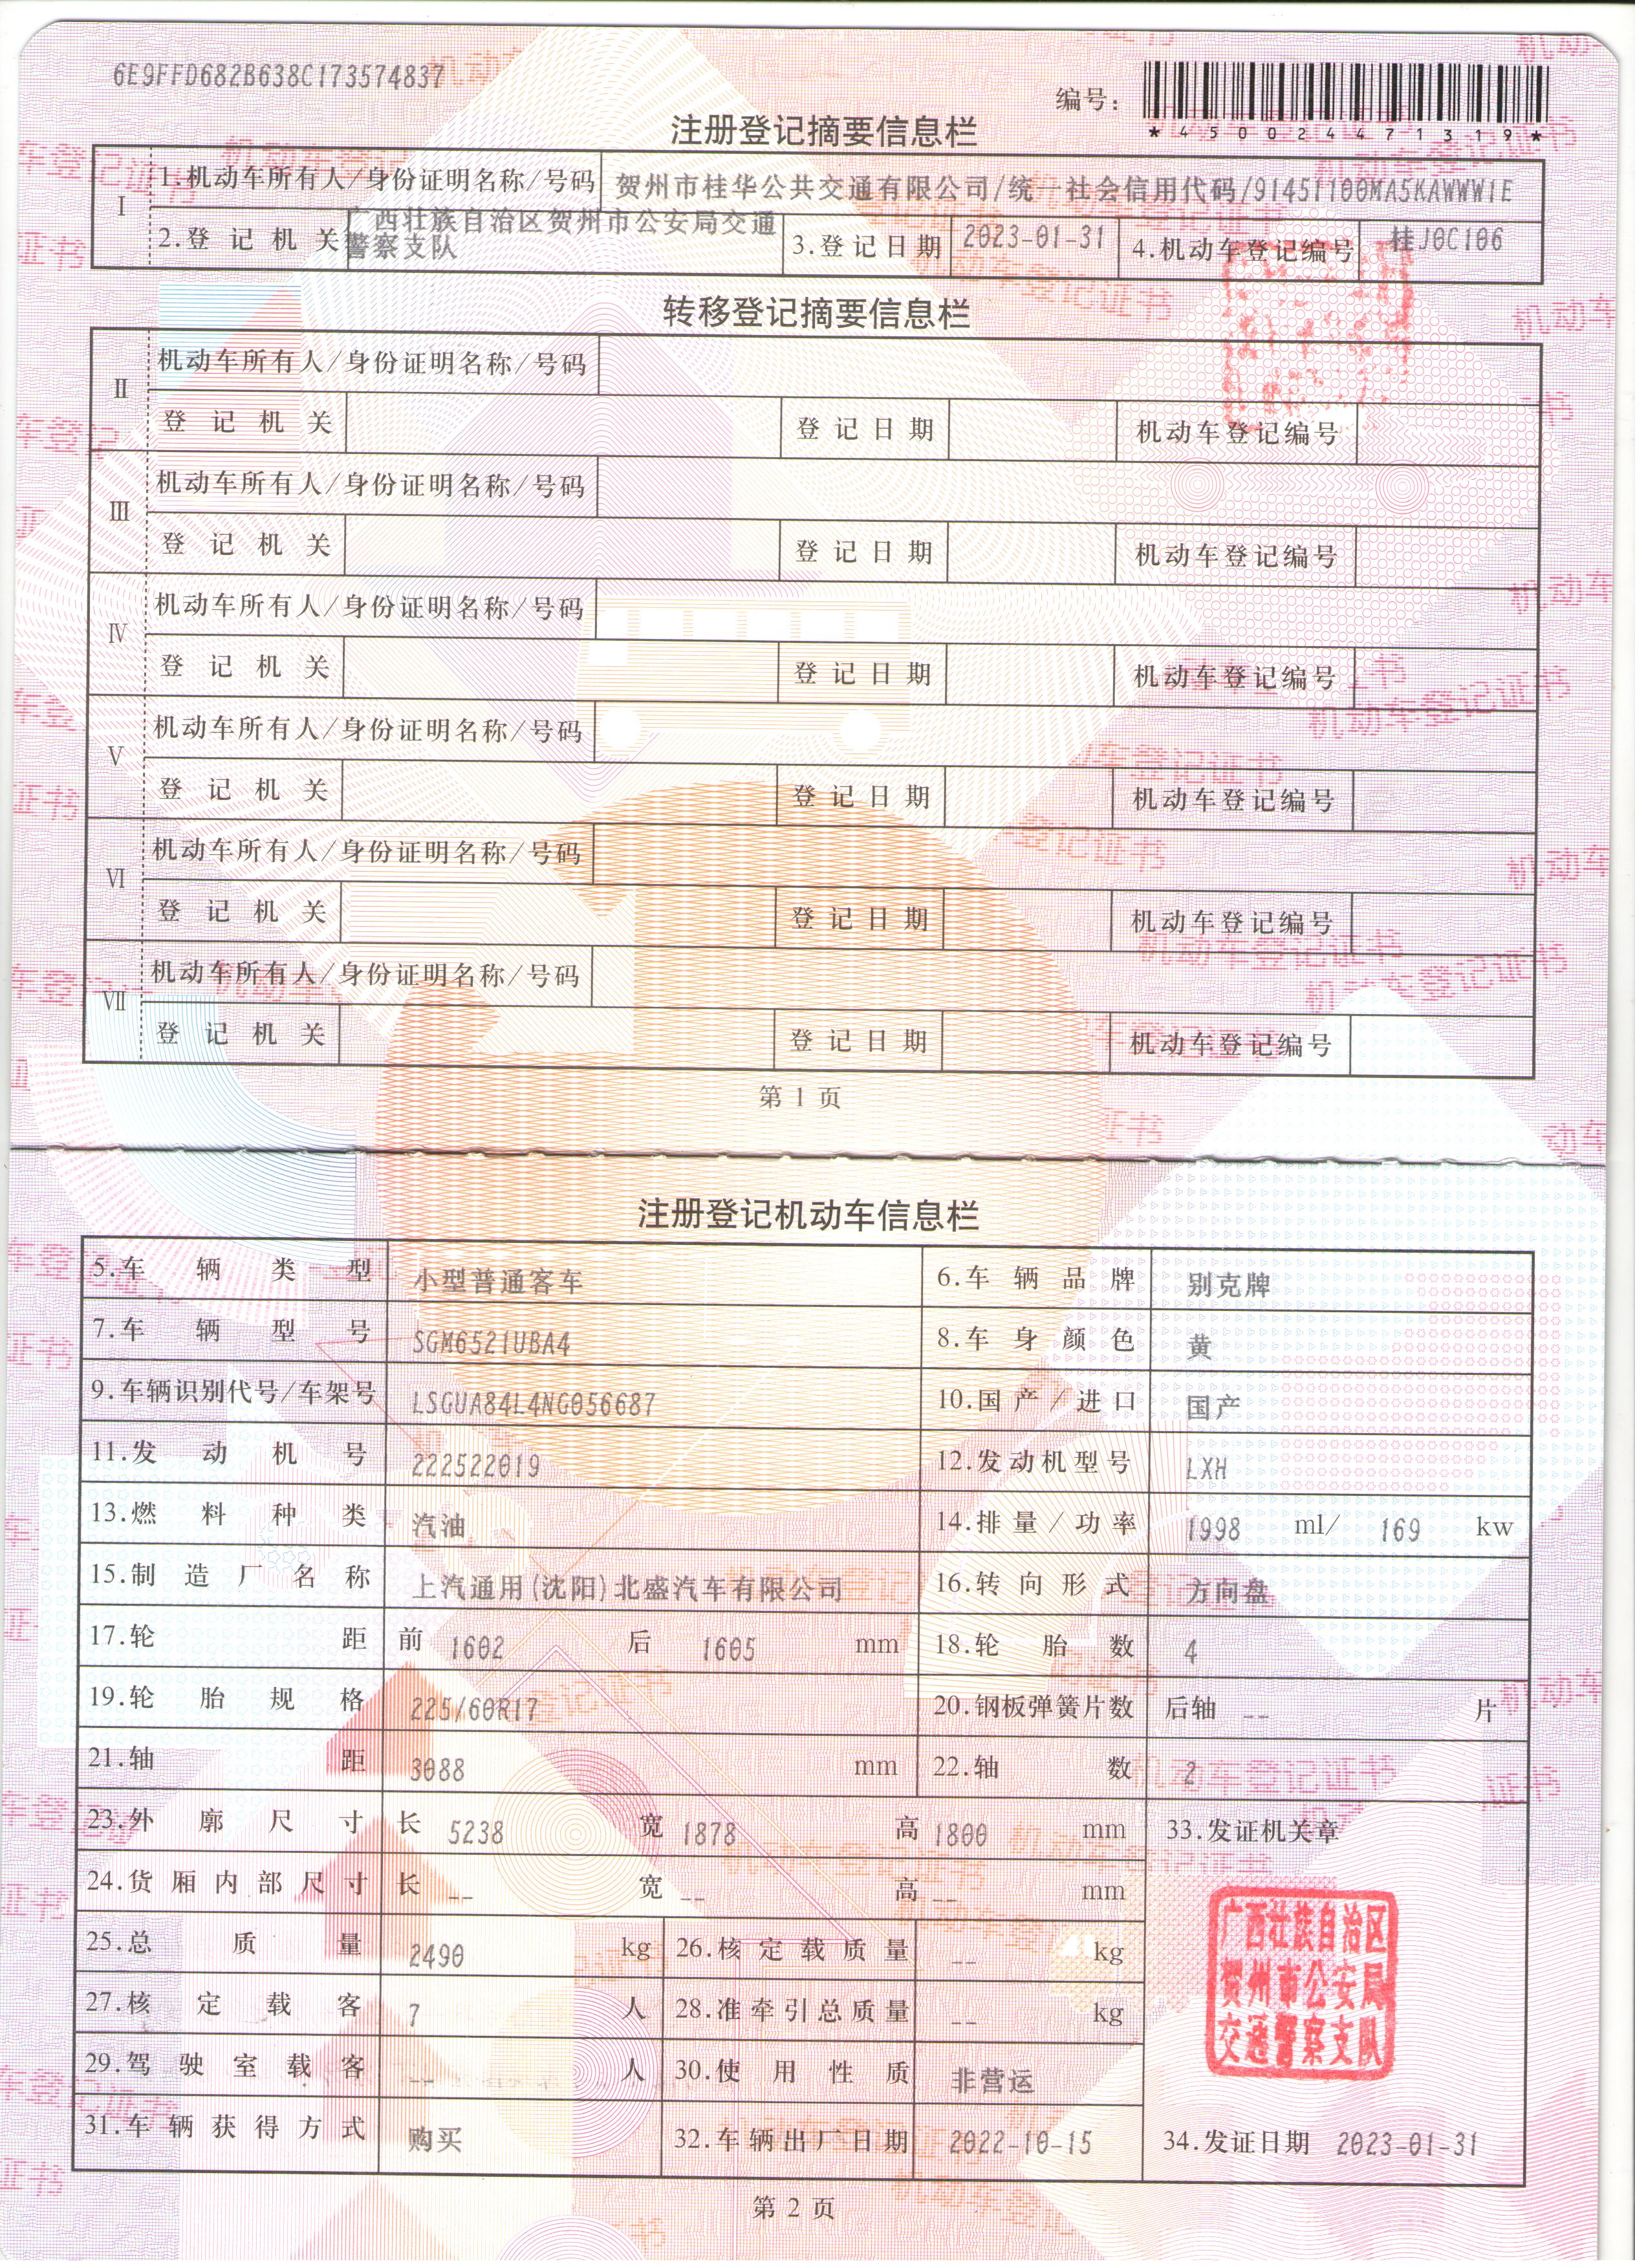 6E9FFD682B638C173574837
编号：
*450024471319*
注册登记摘要信息栏
I 1.机动车所有人/身份证明名称/号码 贺州市桂华公共交通有限公司/统一社会信用代码/91451100MA5KAWWW1E
2.登记机关 广西壮族自治区贺州市公安局交通警察支队 3.登记日期 2023-01-31 4.机动车登记编号 桂J0C106
转移登记摘要信息栏
II 机动车所有人/身份证明名称/号码
登记机关 登记日期 机动车登记编号
III 机动车所有人/身份证明名称/号码
登记机关 登记日期 机动车登记编号
IV 机动车所有人/身份证明名称/号码
登记机关 登记日期 机动车登记编号
V 机动车所有人/身份证明名称/号码
登记机关 登记日期 机动车登记编号
VI 机动车所有人/身份证明名称/号码
登记机关 登记日期 机动车登记编号
VII 机动车所有人/身份证明名称/号码
登记机关 登记日期 机动车登记编号
第 1 页
注册登记机动车信息栏
5.车辆类型 小型普通客车 6.车辆品牌 别克牌
7.车辆型号 SGM6521UBA4 8.车身颜色 黄
9.车辆识别代号/车架号 LSGUA84L4NG056687 10.国产/进口 国产
11.发动机号 222522019 12.发动机型号 LXH
13.燃料种类 汽油 14.排量/功率 1998 ml/ 169 kw
15.制造厂名称 上汽通用(沈阳)北盛汽车有限公司 16.转向形式 方向盘
17.轮距 前 1602 后 1605 mm 18.轮胎数 4
19.轮胎规格 225/60R17 20.钢板弹簧片数 后轴 -- 片
21.轴距 3088 mm 22.轴数 2
23.外廓尺寸 长 5238 宽 1878 高 1800 mm 33.发证机关章
24.货厢内部尺寸 长 -- 宽 -- 高 -- mm
25.总质量 2490 kg 26.核定载质量 -- kg
广西壮族自治区
贺州市公安局
交通警察支队
27.核定载客 7 人 28.准牵引总质量 -- kg
29.驾驶室载客 -- 人 30.使用性质 非营运
31.车辆获得方式 购买 32.车辆出厂日期 2022-10-15 34.发证日期 2023-01-31
第 2 页